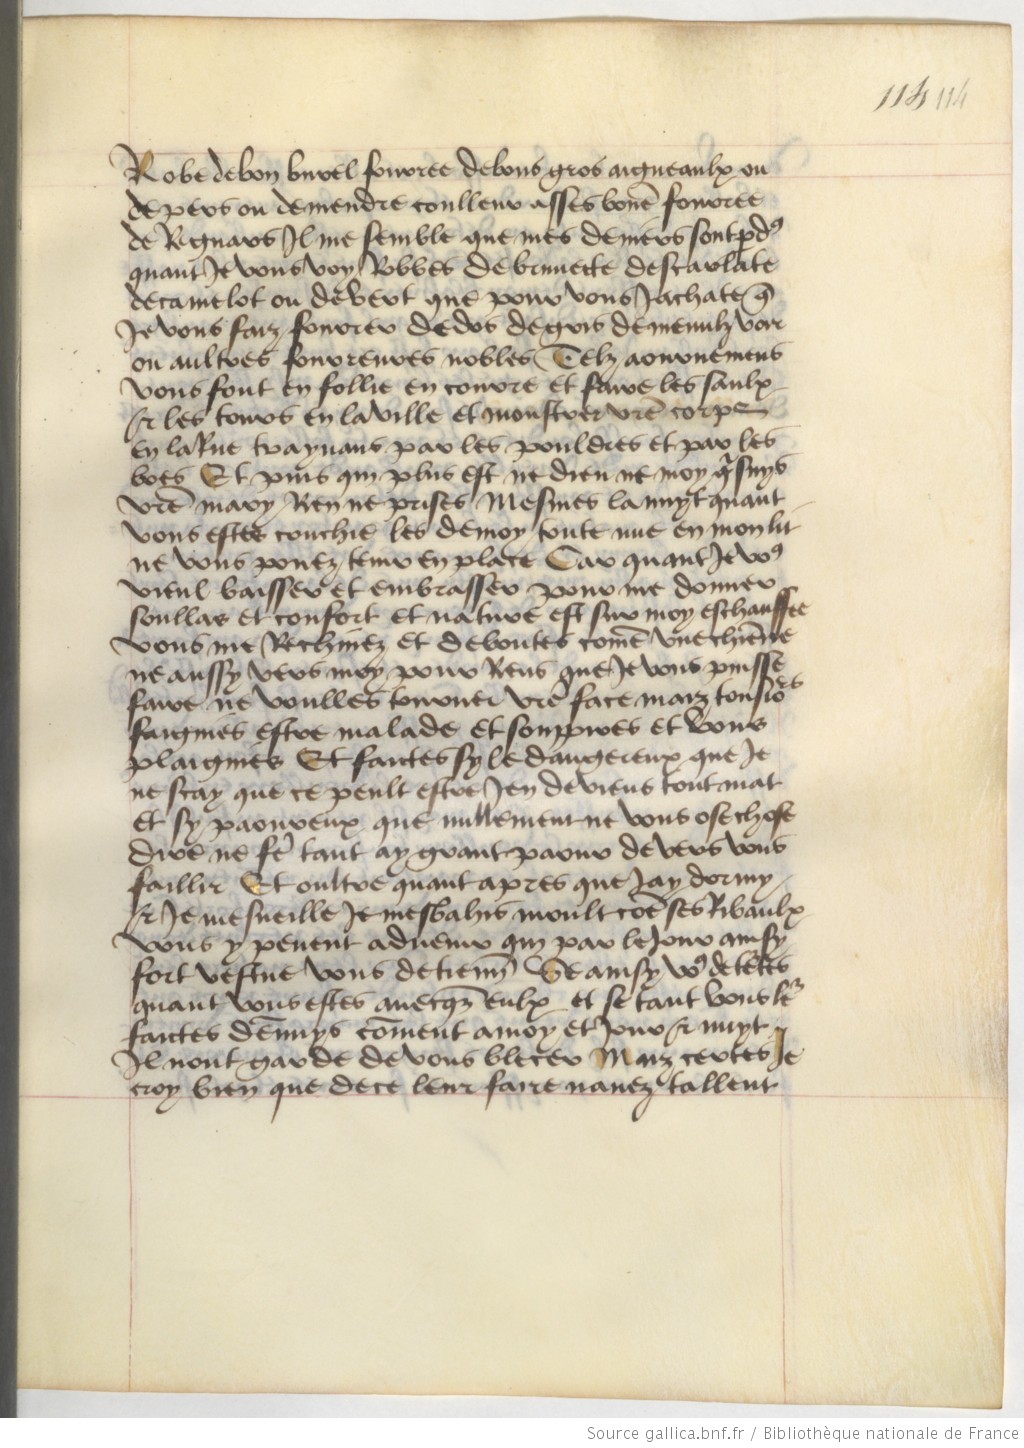 114 114
Robe de bon burel fourree de bons gros aigneaulx ou
de pers ou de mendre coulleur asses bōne fourree
de Regnars Il me semble que mes deniers sont pdꝰ
quant Je vous voy Robbes de brunecte descarlate
de camelot ou de vert que pour vous Jachate q̄
Je vous faiz fourrer de dos de gris de menulz vair
ou aultres fourreures nobles Telz aournemens
vous font en follie en courre et faire les saulx
Et les tours en la ville et monstrer vrē corps
en la Rue traynans par les pouldres et par les
boes Et puis qui plus est ne dieu ne moy q̄ suys
vrē mary Ren ne prises Mesmes la nuyt quant
vous estes couchie les de moy toute nue en mon lit
ne vous pouez tenir en place Car quant Je voꝰ
vieul baisser et embrasser pour me donner
soullas et confort et nature est sur moy eschauffee
vous me Rechinez et deboutes comē vne chiēne
ne aussy vers moy pour Rens que Je vous puisse
faire ne voulles tourner vrē face maiz tousiōrs
faignies estre malade et souppires et vous
plaignies Et faictes sy le dangereux que Je
ne scay que ce peult estre Jen deviens tout mat
et sy paoureux que nullement ne vous ose chose
dire ne fē tant ay grant paour de vers vous
faillir Et oultre quant apres que Jay dormy
Et Je mesueille Je mesbahis moult coē ses Ribaulx
vous y peuent aduenir qui par le Jour ainsy
fort vestue vous detienn̄ Se ainsy voꝰ detētes
quant vous estes auecqz eulx et se tant vous lē
faictes dēnuys cōment a moy et Jour Et nuyt
Il nont garde de vous blecer Maiz certes Je
croy bien que de ce leur faire nauez tallent
Source gallica.bnf.fr / Bibliothèque nationale de France